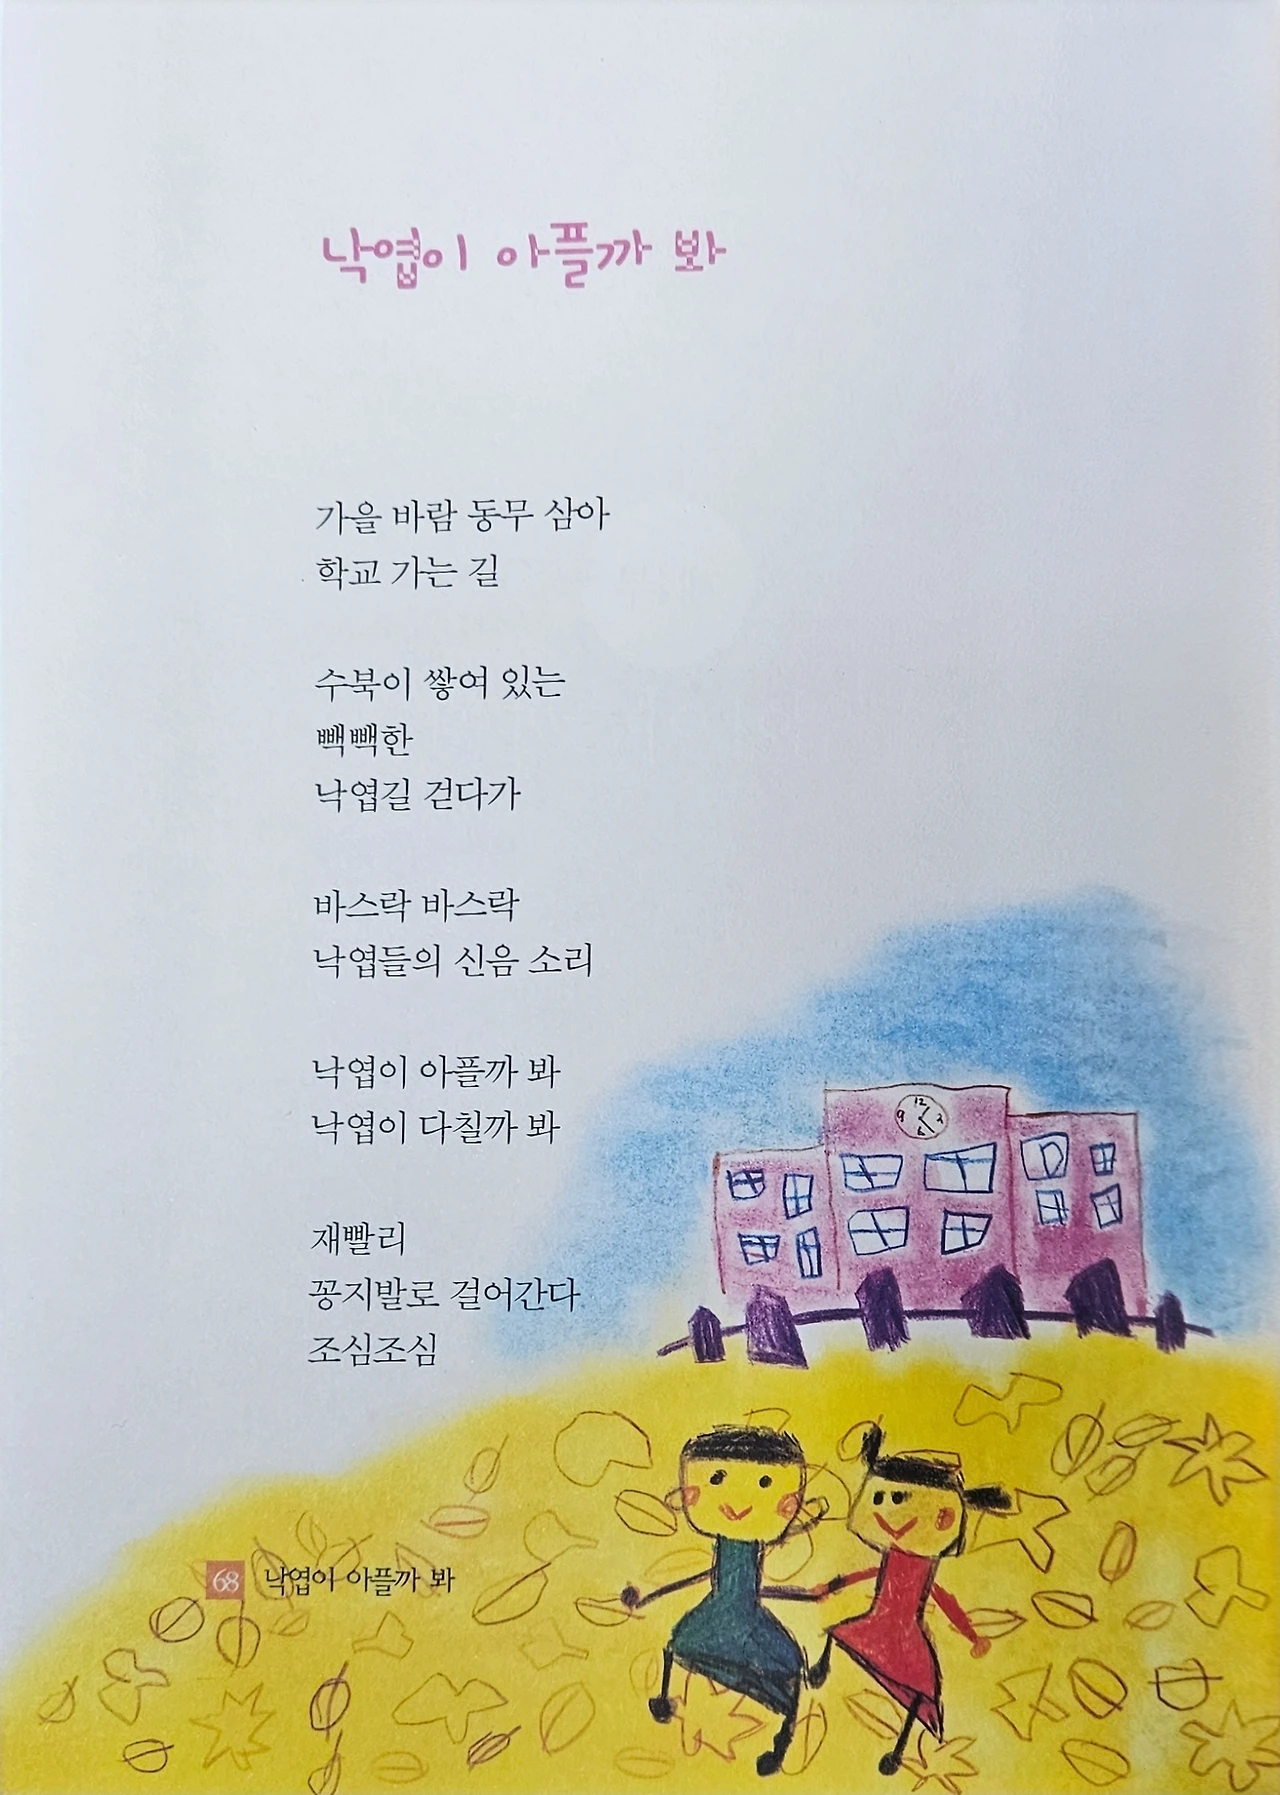 낙엽이 아플까 봐
가을 바람 동무 삼아
학교 가는 길
수북이 쌓여 있는
빽빽한
낙엽길 걷다가
바스락 바스락
낙엽들의 신음 소리
낙엽이 아플까 봐
낙엽이 다칠까 봐
재빨리
꽁지발로 걸어간다
조심조심
12
9
6
68 낙엽이 아플까 봐